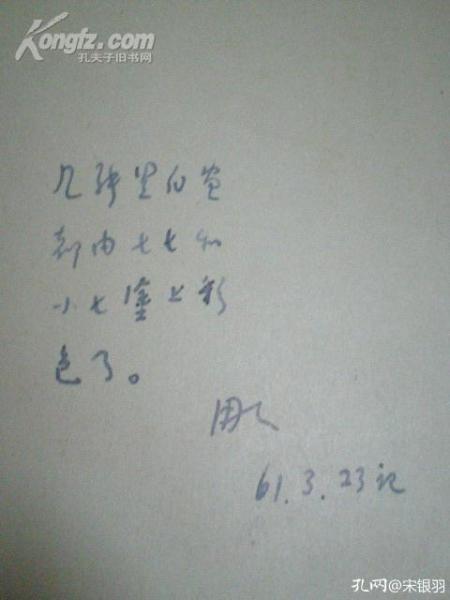 Kongfz.com
孔夫子旧书网
几张里的画
都由七七和
小七塗上彩
色了。
61.3.23记
孔网@宋银羽